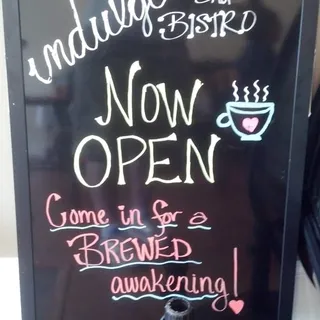 indulge
BISTRO
NOW
OPEN
Come in for a
BREWED
awakening!